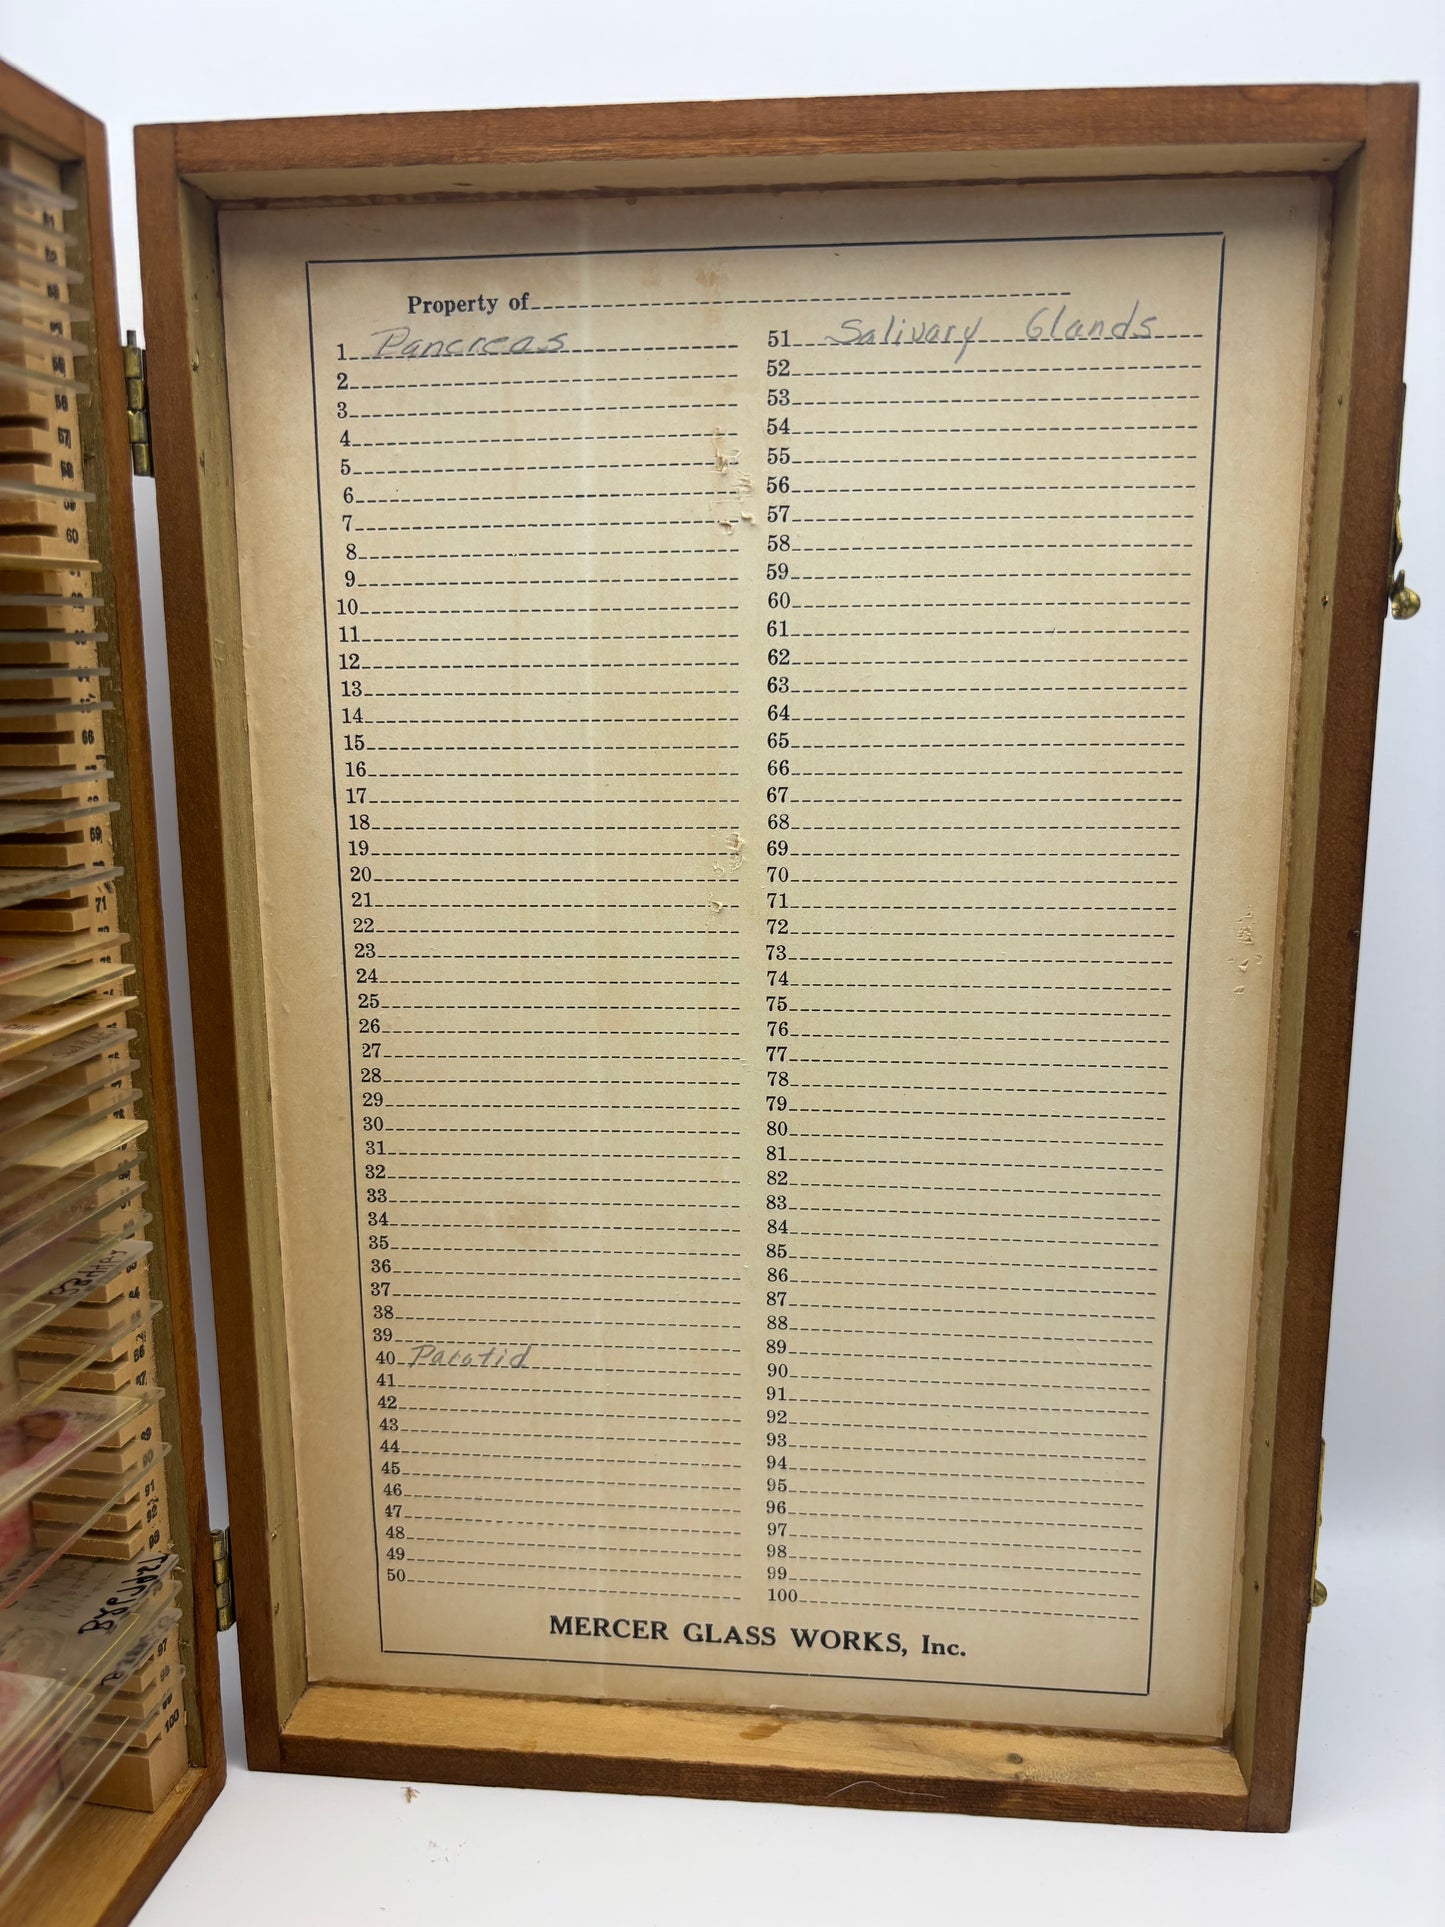 Property of
1 Pancreas
2
3
4
5
6
7
8
9
10
11
12
13
14
15
16
17
18
19
20
21
22
23
24
25
26
27
28
29
30
31
32
33
34
35
36
37
38
39
40 Parotid
41
42
43
44
45
46
47
48
49
50
51 Salivary Glands
52
53
54
55
56
57
58
59
60
61
62
63
64
65
66
67
68
69
70
71
72
73
74
75
76
77
78
79
80
81
82
83
84
85
86
87
88
89
90
91
92
93
94
95
96
97
98
99
100
MERCER GLASS WORKS, Inc.
60
66
69
71
91
92
97
100